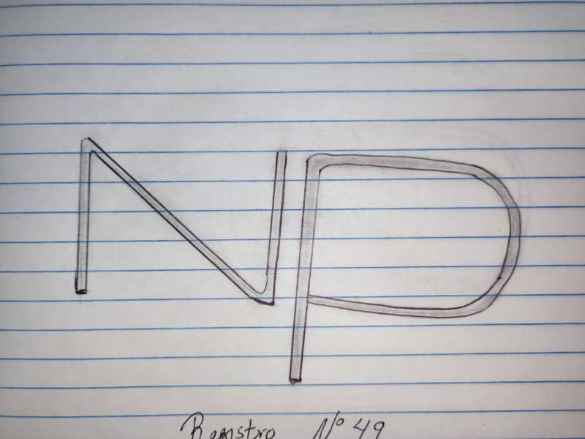 NP
Registro Nº 49